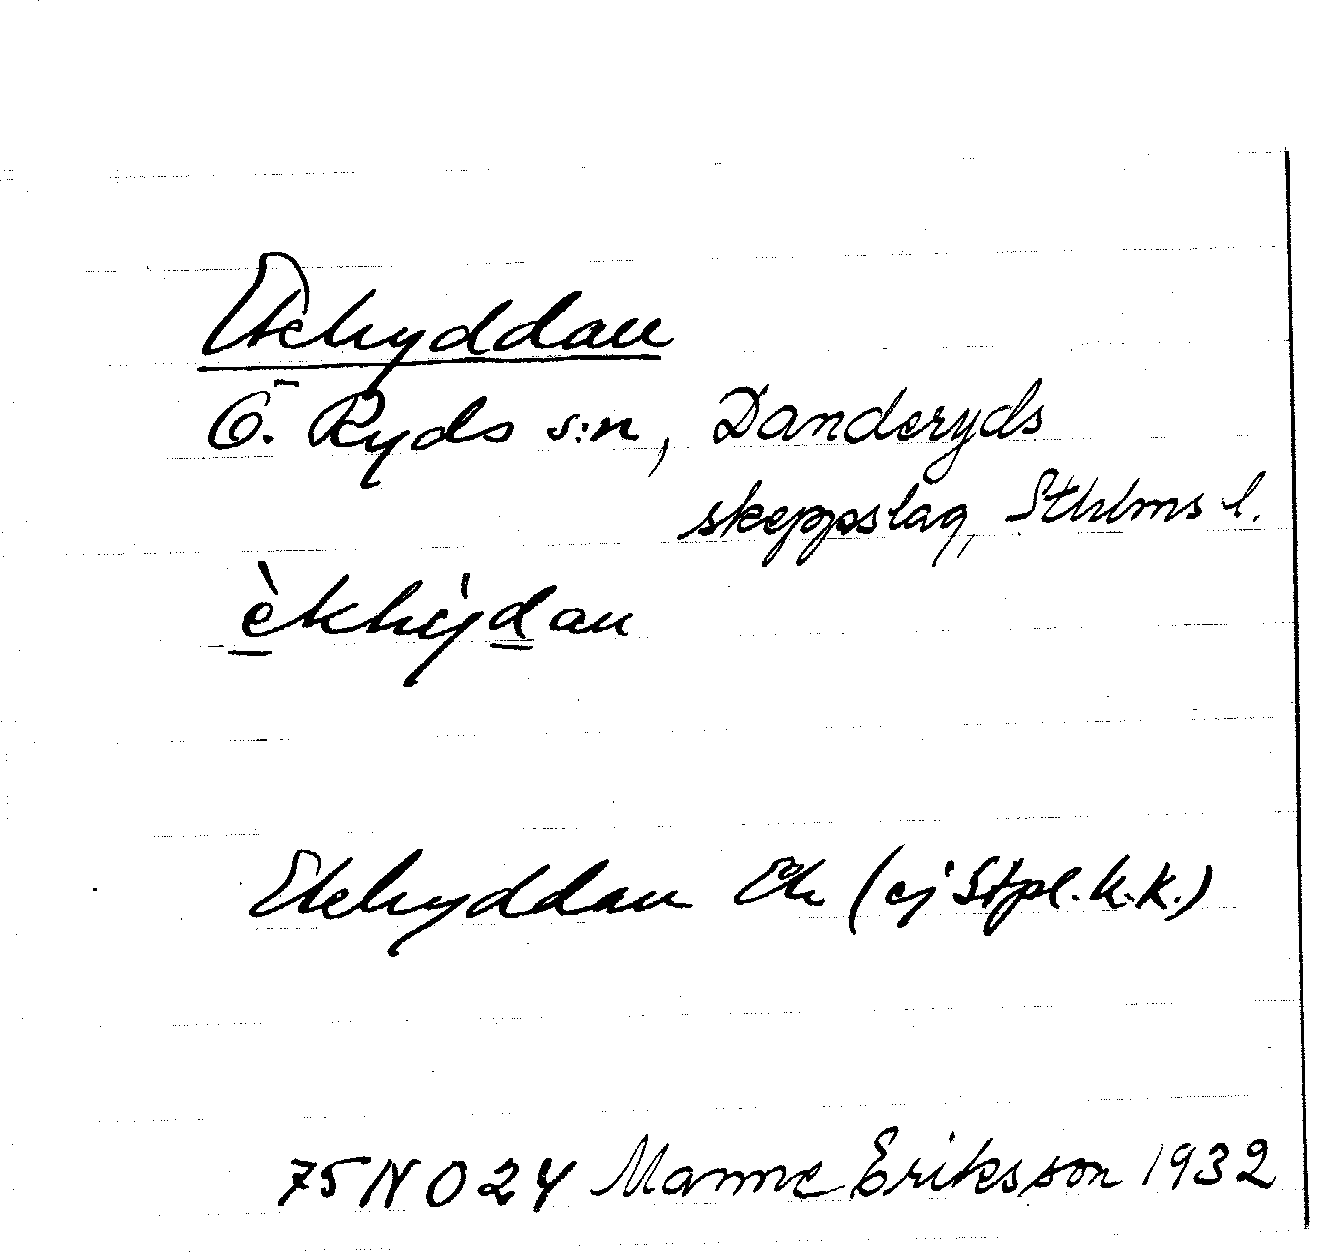 Ekhyddan
Ö. Ryds s:n, Danderyds
skeppslag, Sthlms l.
èkhýdan
Ekhyddan Ek (ej Stpl. h.k.)
75 NO 24 Manne Eriksson 1932